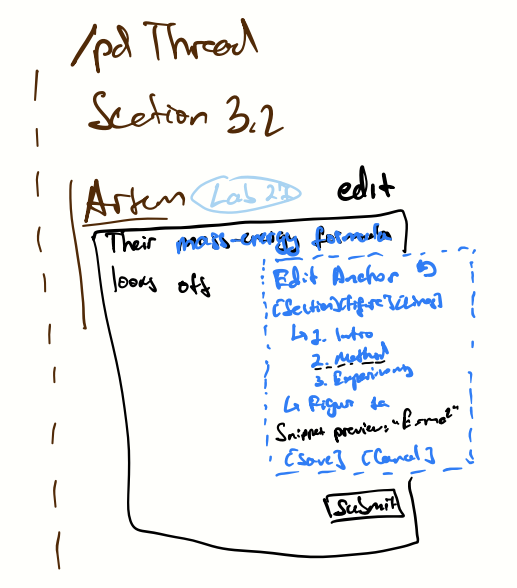 /pd Thread
Section 3.2
Artem Lab 22 edit
Their mass-energy formula
looks off
Edit Anchor
[Section][Figure][Lines]
↳ 1. Intro
2. Method
3. Experiments
↳ Figur 1a
Snippet preview: "E=mc²"
[Save] [Cancel]
Submit